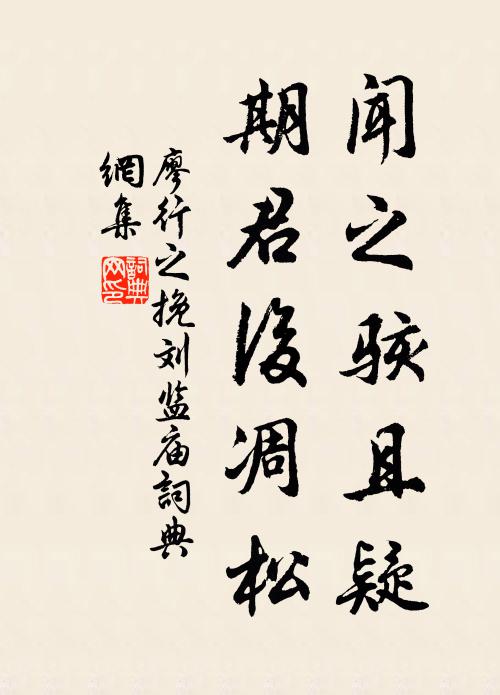 闻之骇且疑
期君后凋松
廖行之挽刘监庙詞典
網集
詞典網印